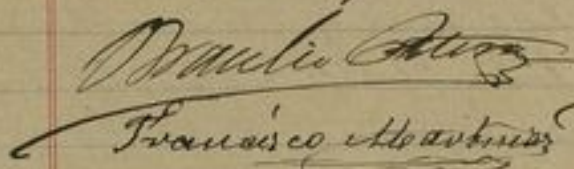 Braulio
Francisco Martinez